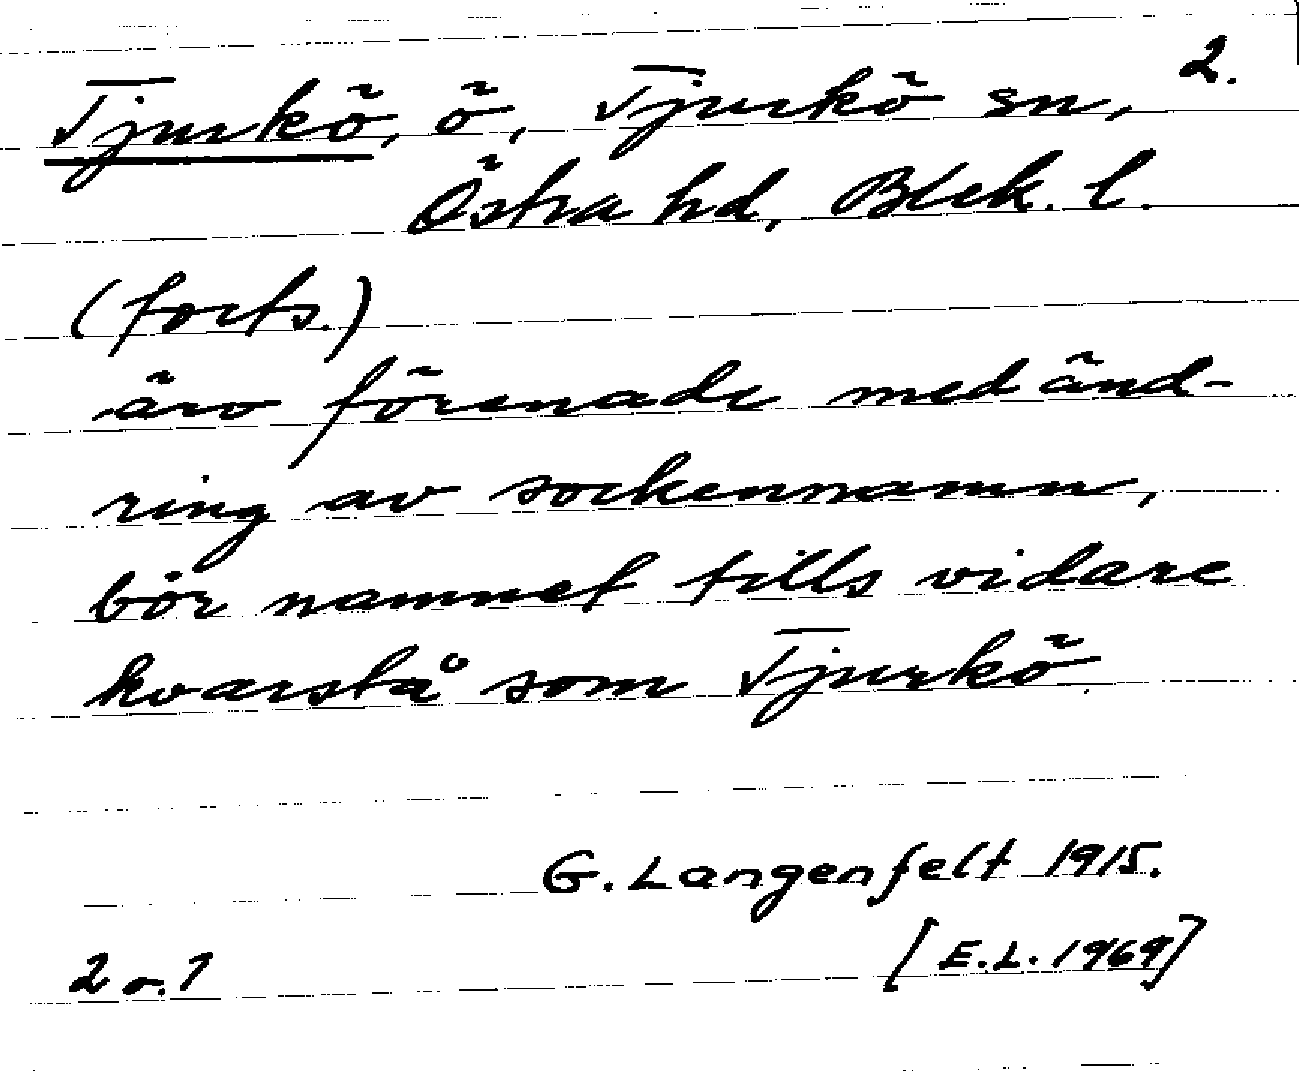 2.
Tjurkö, ö, Tjurkö sn,
Östra hd, Blek. l.
(forts.)
äro förenade med änd-
ring av sockennamn,
bör namnet tills vidare
kvarstå som Tjurkö.
G. Langenfelt 1915.
[E.L. 1969]